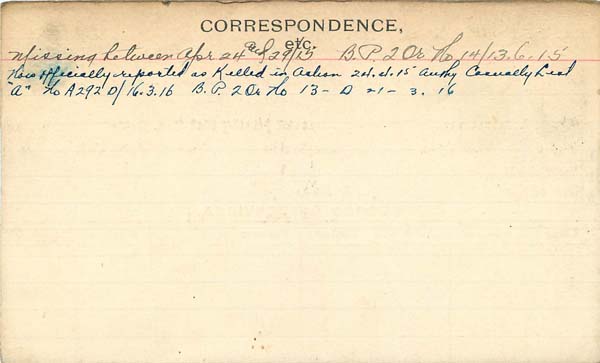 CORRESPONDENCE,
etc.
Missing between Apr 24 and 29/15 B.P. 2 Or No 14/13.6.15
Now officially reported as Killed in Action 24.4.15 Authy Casualty List
"A" No A292 D/16.3.16 B.P. 2 Or No 13-D 21-3.16